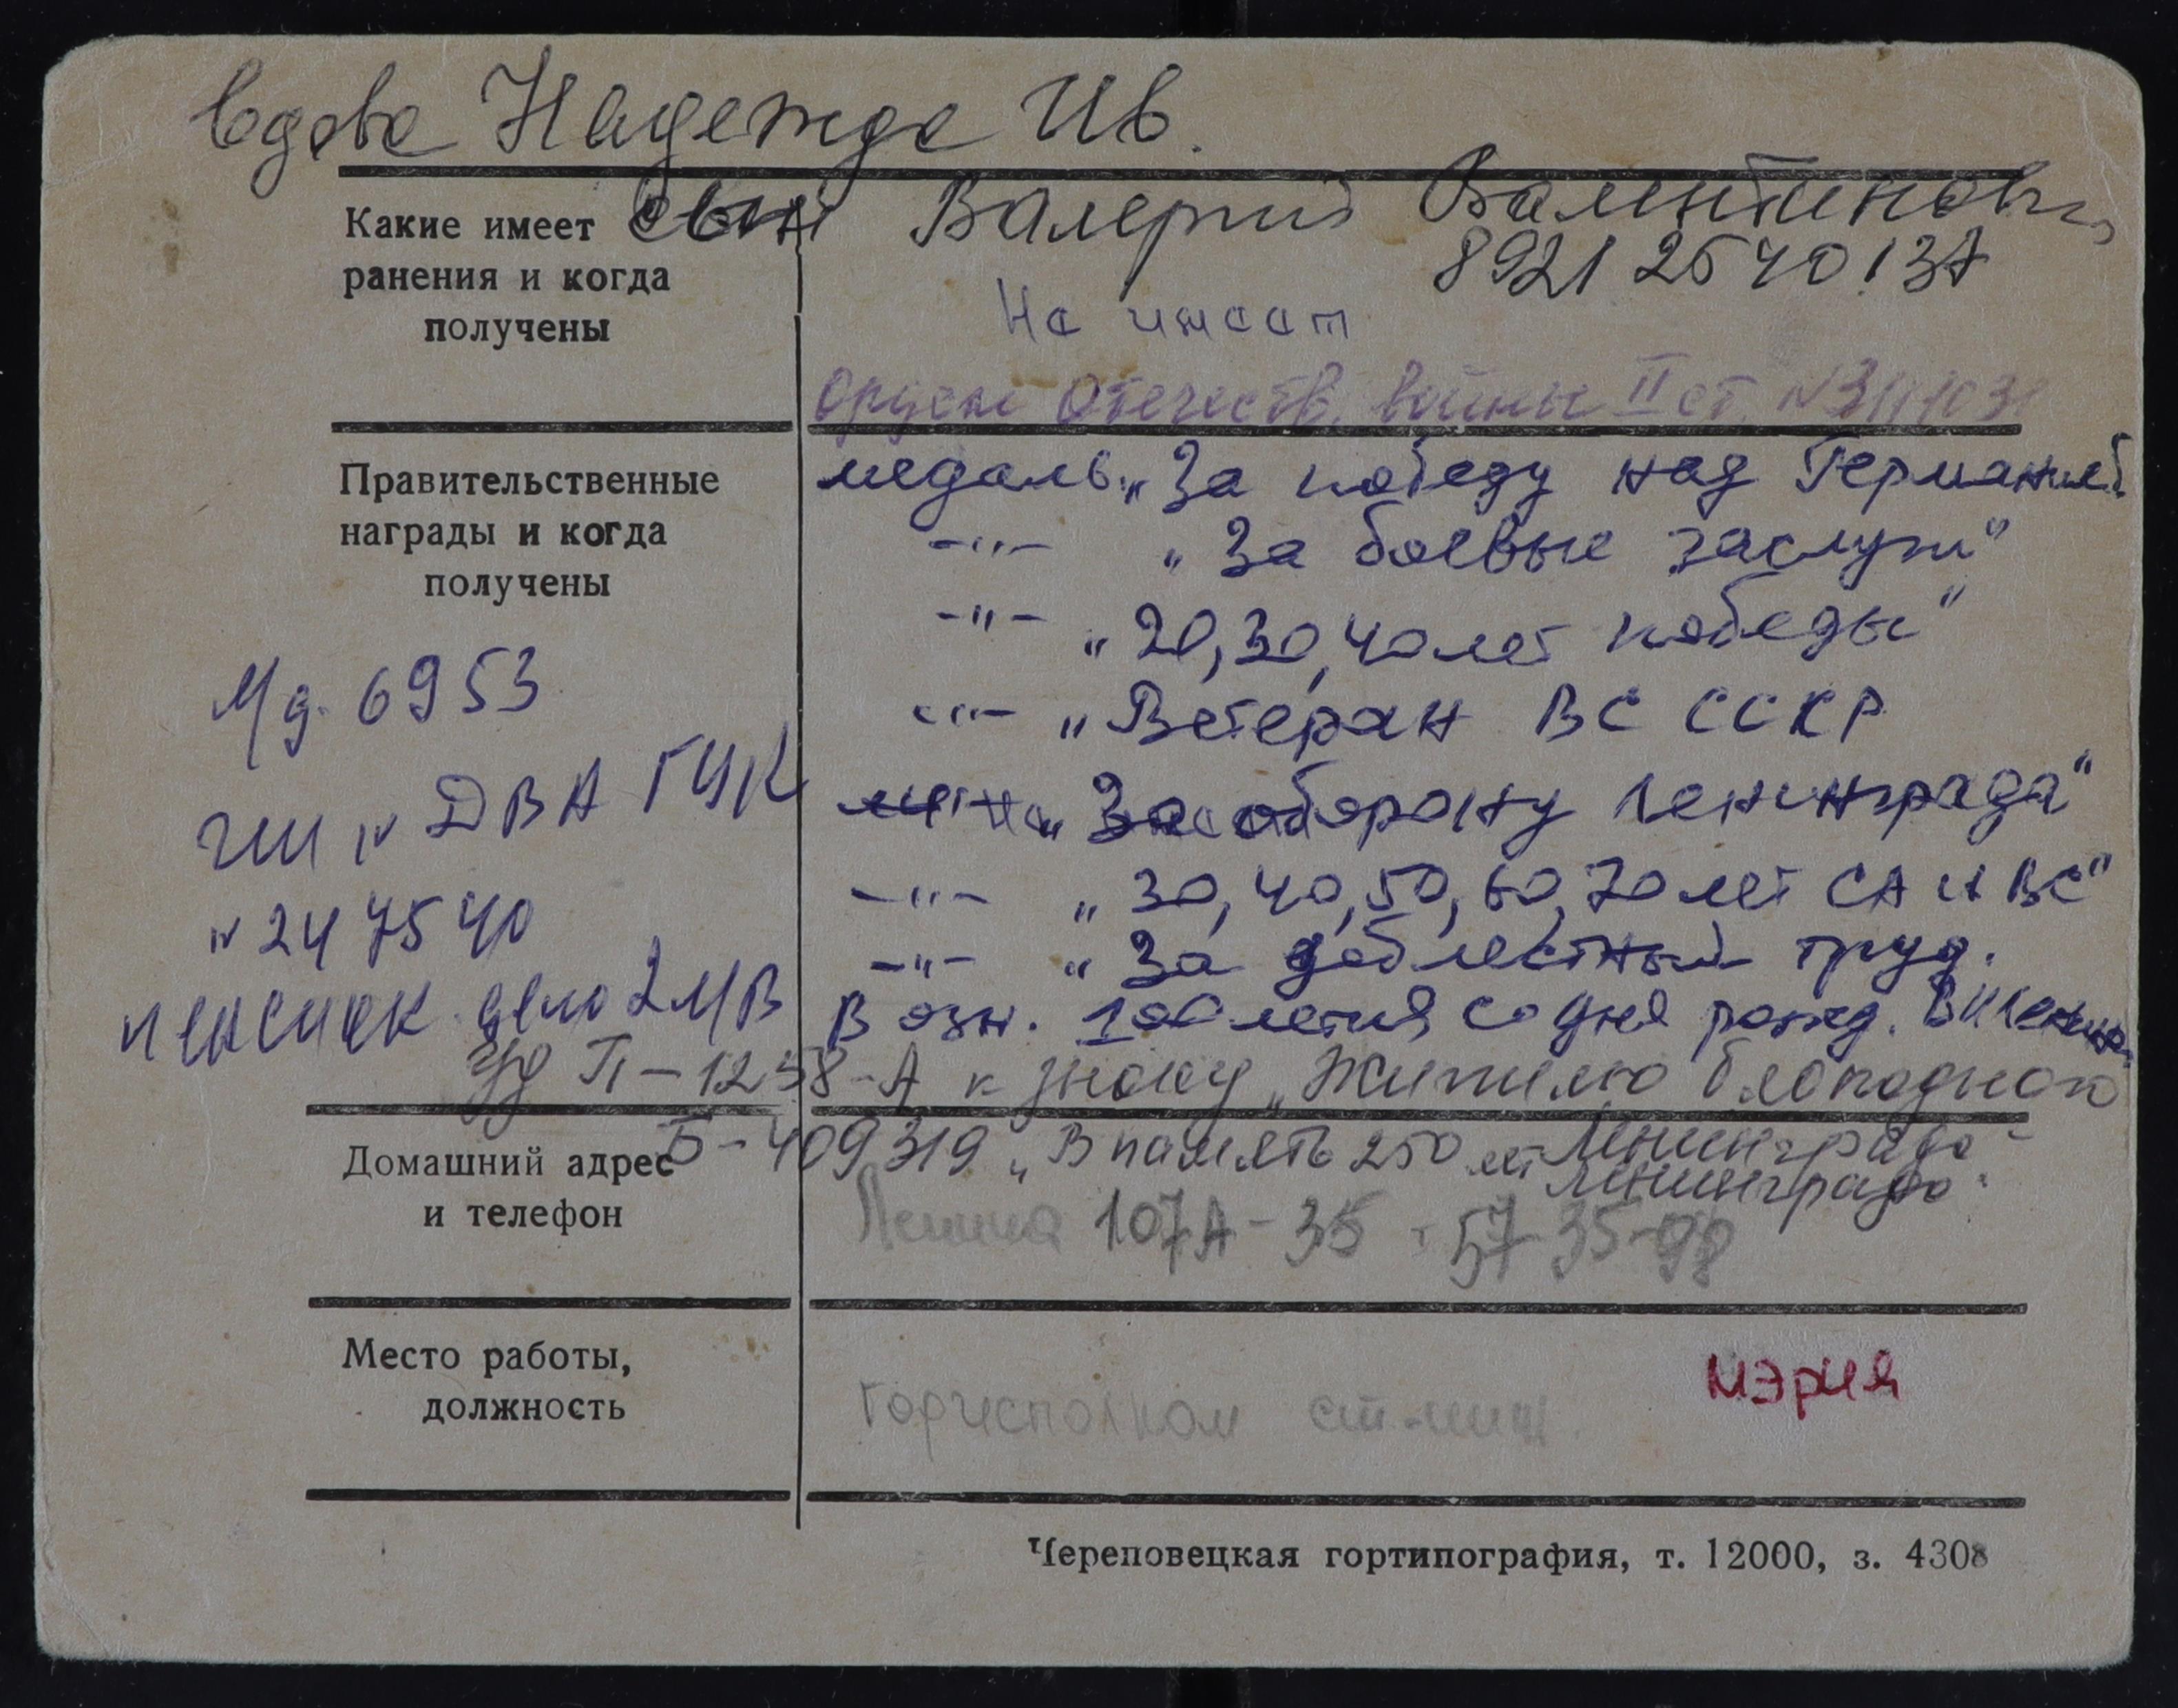 вдова Надежда Ив.
Какие имеет сын Валерий Валентинович
ранения и когда 8921 2540137
получены Не имеет
Орден Отечеств. войны II ст. №
Правительственные медаль „За победу над Германией"
награды и когда -"- „За боевые заслуги"
получены -"- „20, 30, 40 лет победы"
Уд. 6953 -"- „Ветеран ВС СССР
ДВА ГУК „За оборону Ленинграда"
№ 247540 -"- „30, 40, 50, 60, 70 лет СА и ВС"
-"- „За доблестный труд.
пенсион. дело 2МВ В озн. 100 летия со дня рожд. В И Ленина
Уд П-1258-А к знаку „Жителю блокадного
Ленинграда"
Домашний адрес Б-409319 „В память 250 лет Ленинграда"
и телефон Ленина 107А - 35 т 57-35-98
Место работы, мэрия
должность горисполком ст-инж.
Череповецкая гортипография, т. 12000, з. 4308